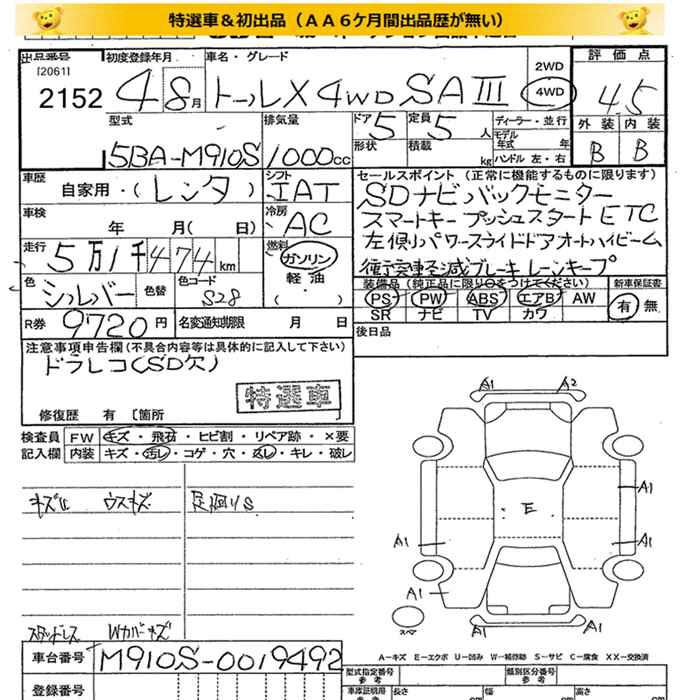 特選車＆初出品（ＡＡ６ケ月間出品歴が無い）
出品番号 初度登録年月 車名・グレード 2WD 評価点
[2061]
2152 4 8月 トールX 4WD SAⅢ 4WD 4.5
型式 排気量 ドア 5 定員 5人 ディーラー・並行 外装 内装
5BA-M910S 1000cc 形状 積載 kg モデル年式 年 ハンドル 左・右 B B
車歴 シフト セールスポイント（正常に機能するものに限ります）
自家用・(レンタ) IAT SDナビ バックモニター
車検 冷房 スマートキー プッシュスタート ETC
年 月( 日) AC 左側パワースライドドア オートハイビーム
走行 燃料 衝突軽減ブレーキ レーンキープ
5万1千474km ガソリン 装備品（純正品に限り○をつけてください） 新車保証書
色 シルバー 色替 色コード S28 軽油 PS PW ABS エアB AW 有 無
R券 9720円 名変通知期限 月 日 SR ナビ TV カワ
後日品
注意事項申告欄（不具合内容等は具体的に記入して下さい）
ドラレコ(SD欠)
特選車
修復歴 有〔箇所 〕
検査員 FW キズ・飛石・ヒビ割・リペア跡・×要
記入欄 内装 キズ・汚し・コゲ・穴・スレ・キレ・破レ
A1 A2
キズ ウスキズ 足廻りS
A1
E
A1 A1
A1
スペア
スタッドレス Wカバーキズ
A－キズ E－エクボ U－凹み W－補修跡 S－サビ C－腐食 XX－交換済
車台番号 M910S-0019492
型式指定番号 参考 類別区分番号 参考
登録番号 車庫証明用 参考 長さ cm 幅 cm 高さ cm